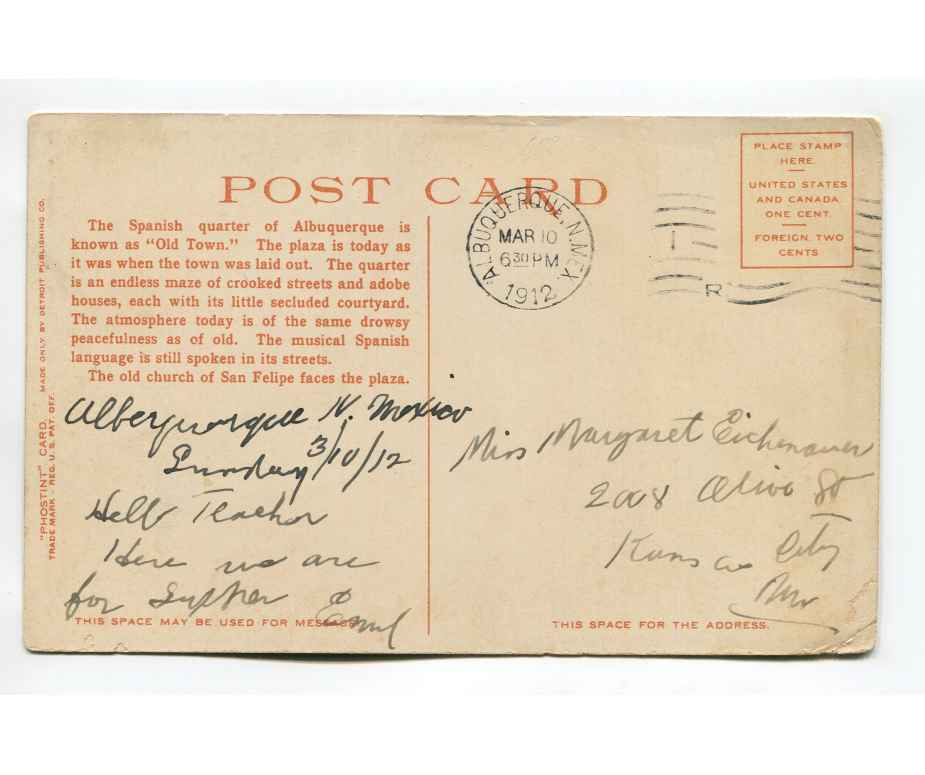 POST CARD
The Spanish quarter of Albuquerque is
known as "Old Town." The plaza is today as
it was when the town was laid out. The quarter
is an endless maze of crooked streets and adobe
houses, each with its little secluded courtyard.
The atmosphere today is of the same drowsy
peacefulness as of old. The musical Spanish
language is still spoken in its streets.
The old church of San Felipe faces the plaza.
"PHOSTINT" CARD. MADE ONLY BY DETROIT PUBLISHING CO.
TRADE MARK - REG. U.S. PAT. OFF.
Alberquorque N. Mexico
Sunday 3/10/12
Hello Teacher
Here we are
for Supper Emil
THIS SPACE MAY BE USED FOR MESSAGE
ALBUQUERQUE, N. MEX.
MAR 10
6 30 PM
1912
R
PLACE STAMP
HERE
UNITED STATES
AND CANADA
ONE CENT.
FOREIGN, TWO
CENTS
Miss Margaret Eichenauer
2008 Olive St
Kansas City
Mo
THIS SPACE FOR THE ADDRESS.